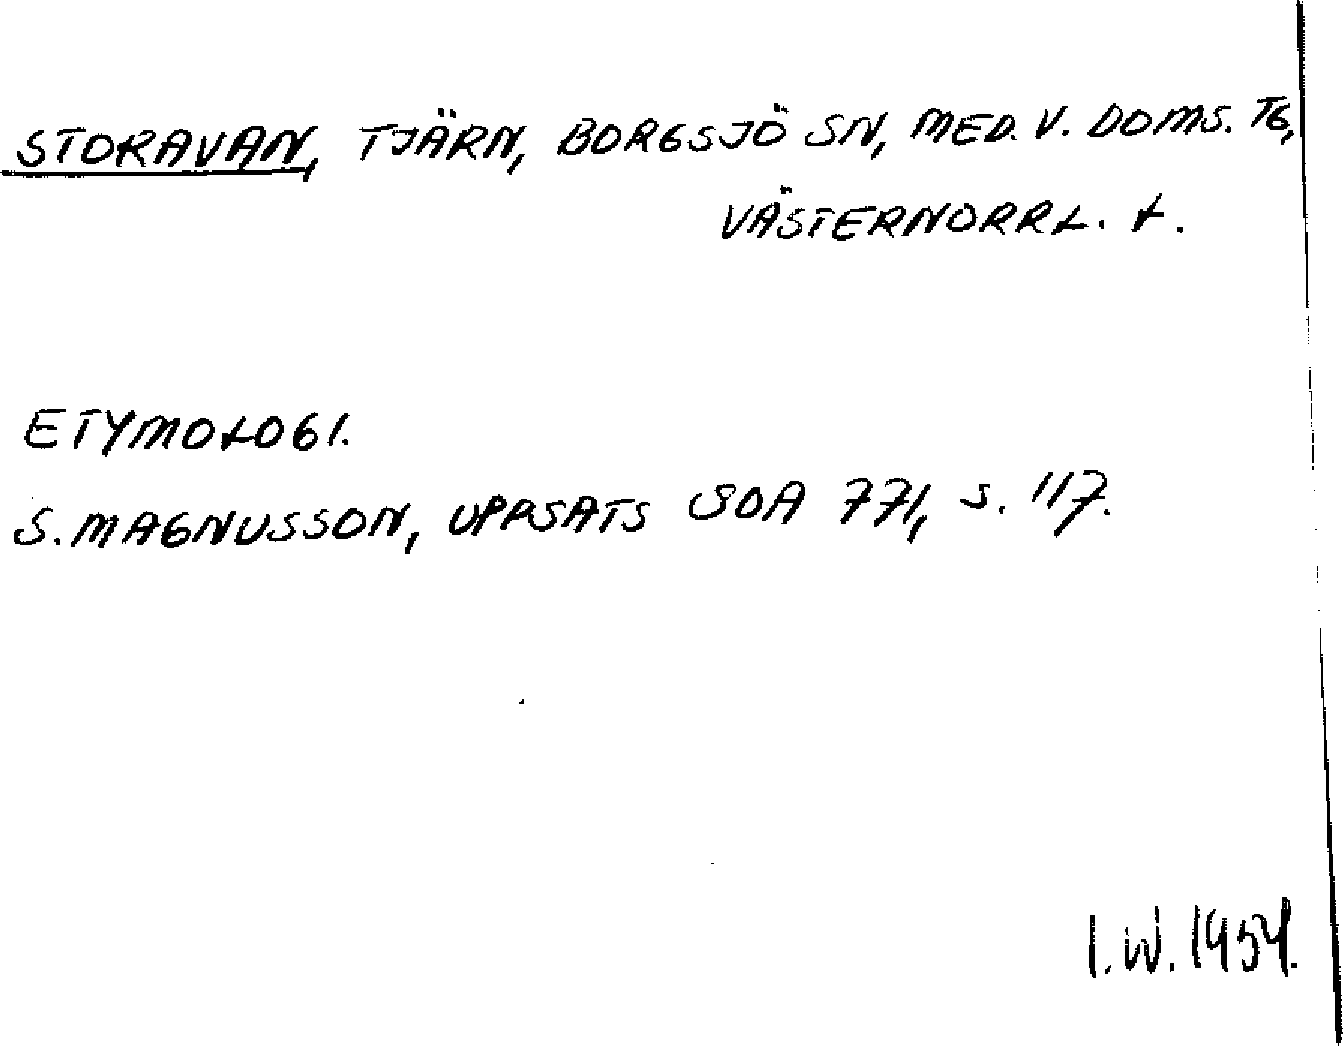 STORAVAN, TJÄRN, BORGSJÖ SN, MED. V. DOMS. TG,
VÄSTERNORRL. L.
ETYMOLOGI.
S. MAGNUSSON, UPPSATS SOA 771, S. 117.
I. W. 1954.